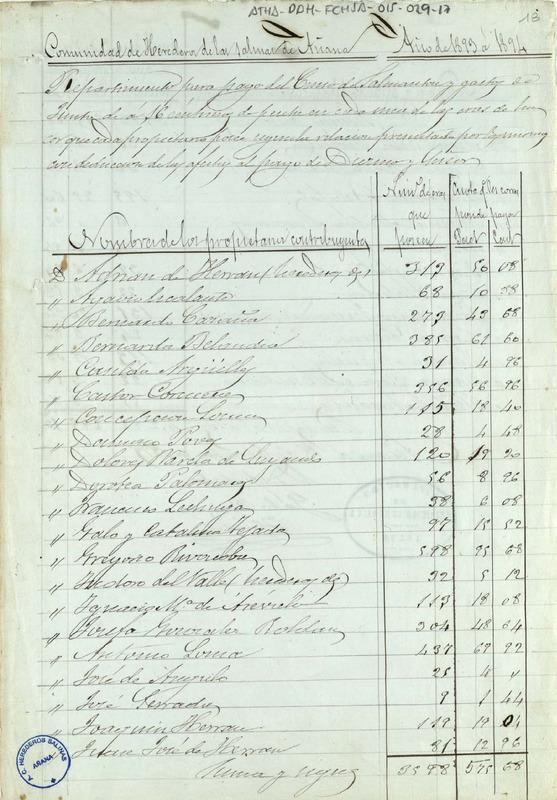 ATHA-DAH-FCHSA-015-029-17
13
Comunidad de Herederos de las salinas de Añana Año de 1893 á 1894
Repartimiento para pago del Censo de Salmantón y gastos de
Junta de á 16 céntimos de peseta en cada una de las eras de
que cada propietario posee segun la relacion presentada por
con deduccion de las afectas al pago de Diezmo y
Nombres de los propietarios contribuyentes
Num.º de eras que poseen
Cuota q. les corresponde pagar
Peset Cent
D Adrian de Herran (herederos de) 313 50 08
" Ygnacio 68 10 88
" Bernardo 273 43 68
" Bernarda Belandia 385 61 60
" Casilda 31 4 96
" Castor 356 56 96
" Concepcion 115 18 40
" Damaso Povez 28 4 48
" Dolores Varela de 120 19 20
" Dorotea Palomares 56 8 96
" Francisco 38 6 08
" Galo y Catalina Tejada 97 15 52
" Gregorio 598 95 68
" Isidoro del Valle (herederos de) 32 5 12
" Ignacio Mª de Arévalo 113 18 08
" Josefa Gonzalez Roldan 304 48 64
" Antonio Loma 437 69 92
" José de Angulo 25 4 "
" José 9 1 44
" Joaquin Herran 119 19 04
" Juan José de Herran 81 12 96
Suma y sigue 3598 575 68
A. C. HEREDEROS SALINAS
AÑANA